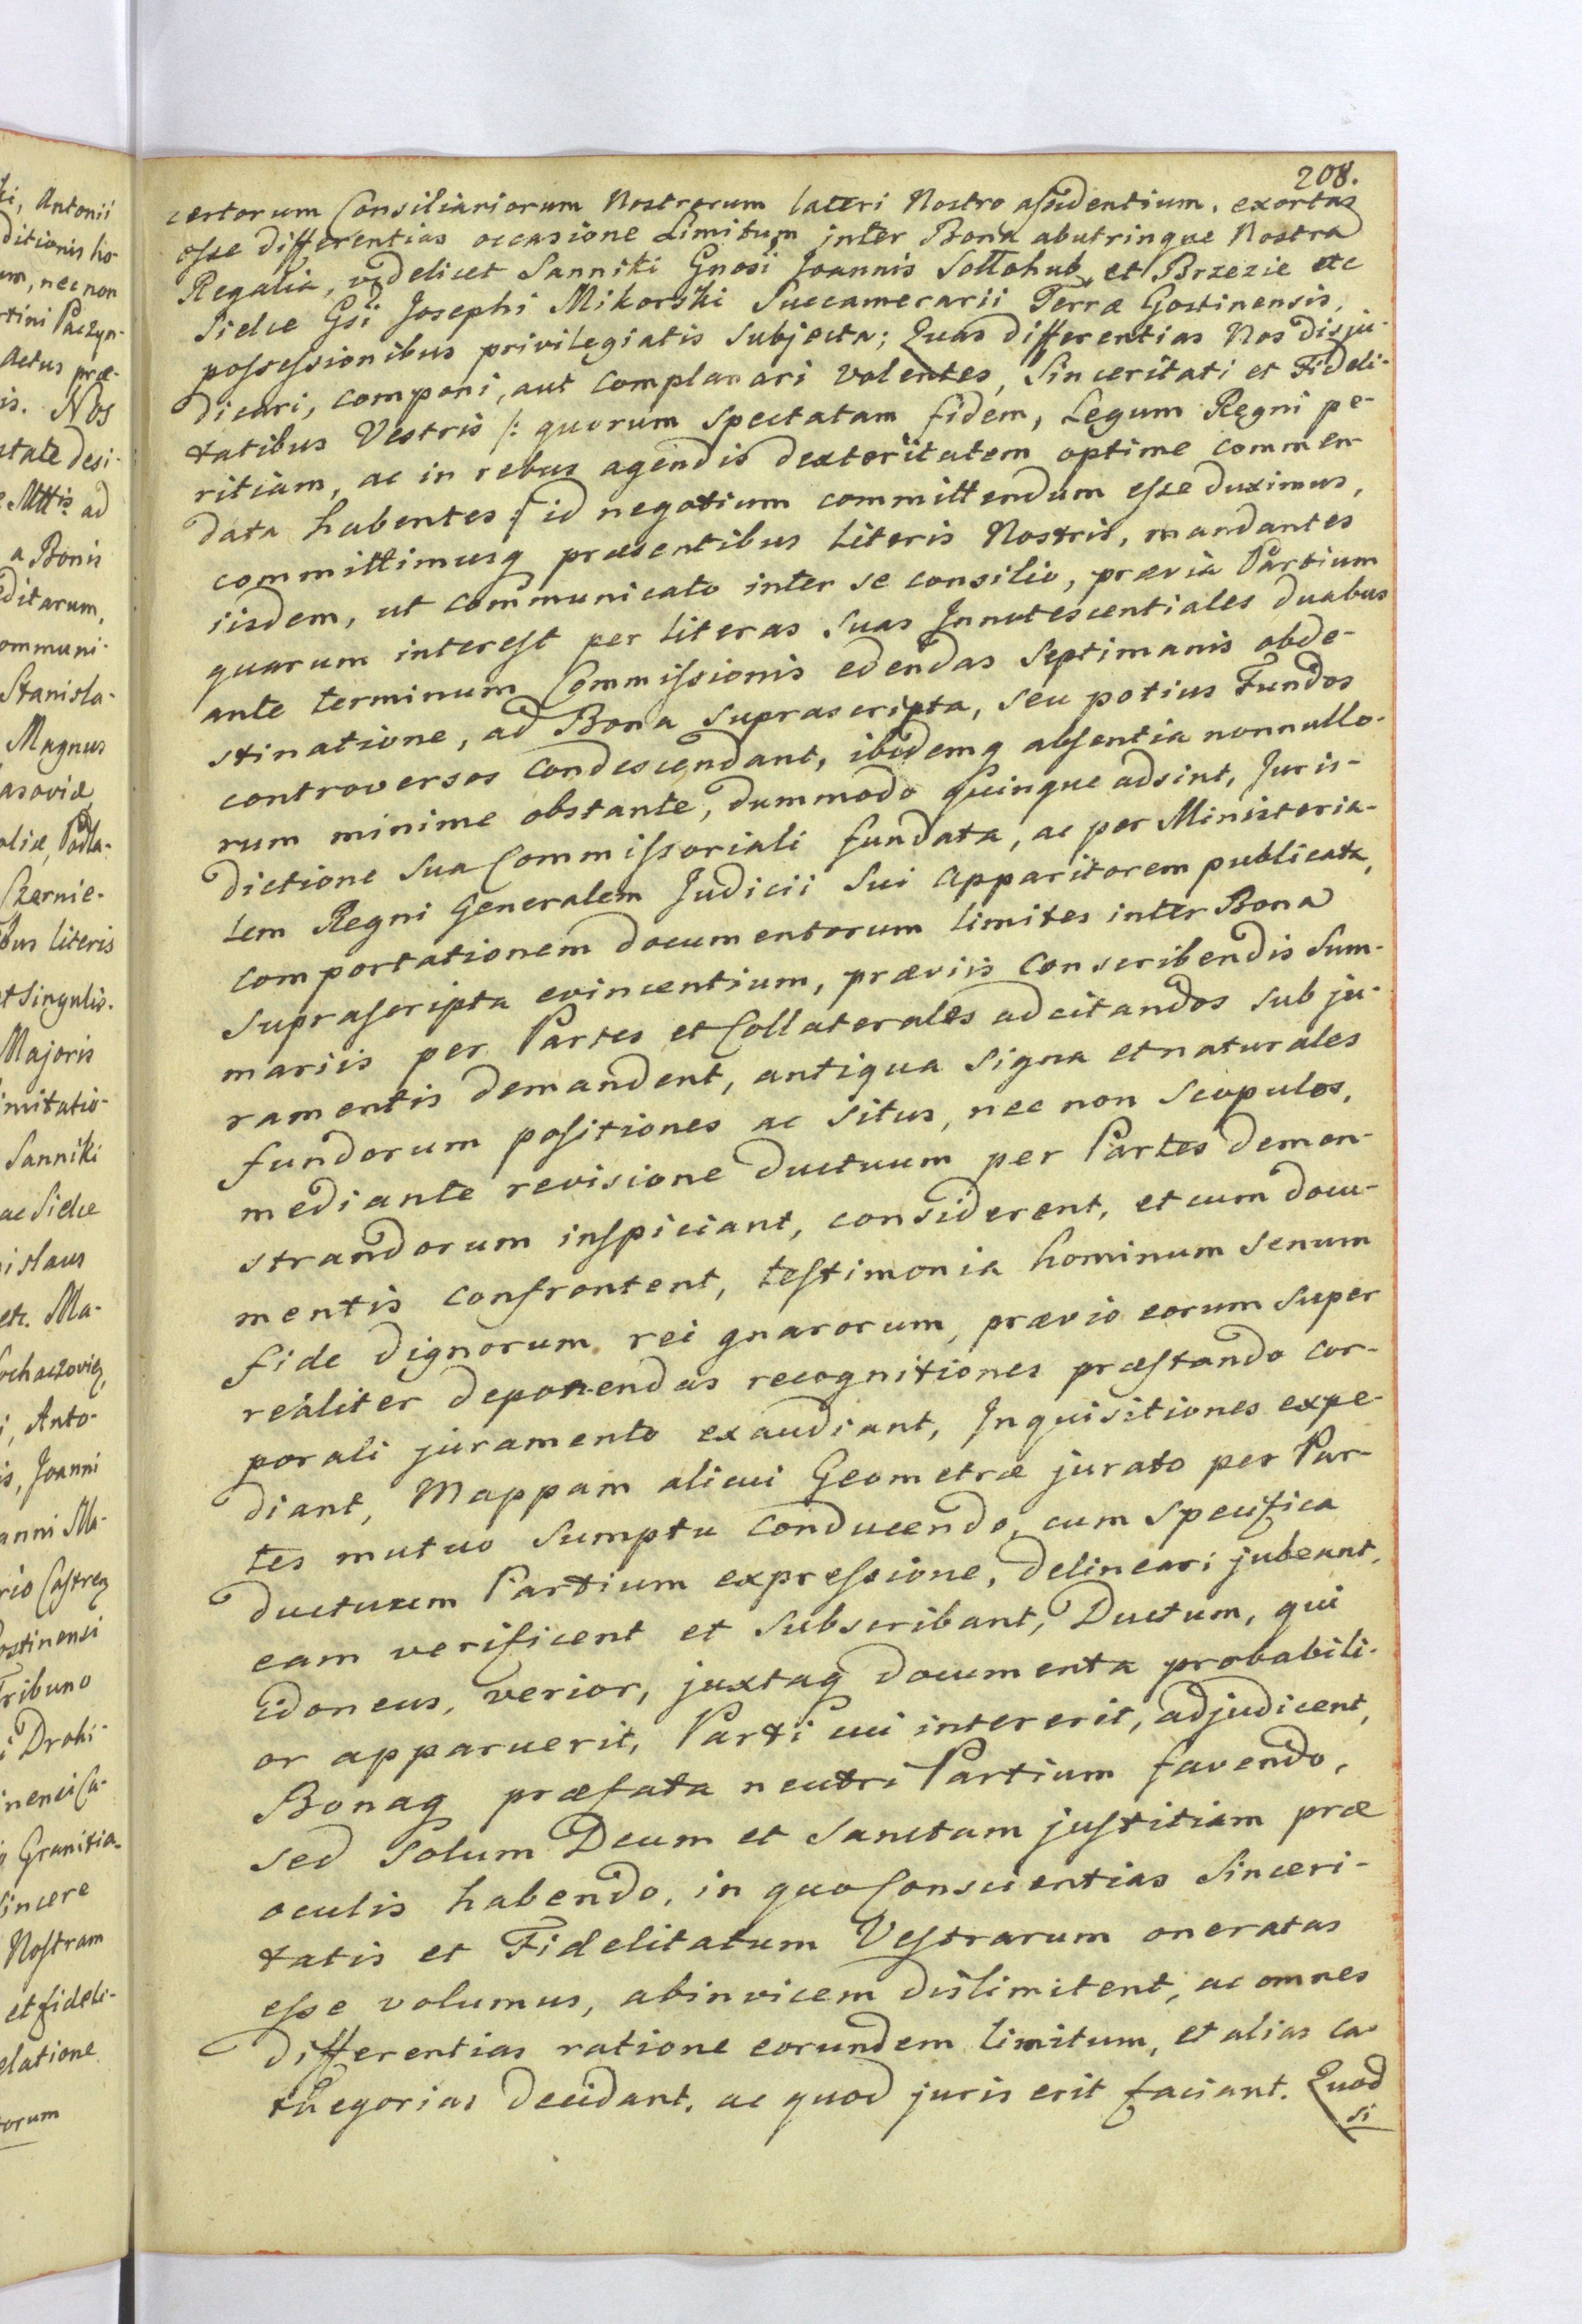 ki, Antonii
ditionis lio-
um, nec non
rtini Paczyn-
Actus præ-
is. Nos
state desi-
e Mttis ad
a Bonis
ditarum,
ommuni-
Stanisla-
Magnus
asoviæ
oliæ, Podla-
Czernie-
bus literis
et singulis.
Majoris
imitatio-
Sanniki
ac Sielce
islaus
etc. Ma-
ochaczovien,
i, Anto-
is, Joanni
anni Ma-
rio Castren
ostinensi
Tribuno
i Drohi-
inensi Ca-
Granitia-
Sincere
Nostram
et fideli-
elatione
torum
208.
certorum Consiliariorum Nostrorum lateri Nostro assidentium, exortas
esse differentias occasione Limitum inter Bona abutrinque Nostra
Regalia, videlicet Sanniki Gnosi Joannis Sollohub, et Brzezie etc
Sielce Gsi Josephi Mikorski Succamerarii Terræ Gostinensis,
possessionibus privilegiatis subjecta; Quas differentias Nos disju-
dicari, componi, aut complanari volentes, Sinceritati et Fideli-
tatibus Vestris /: quorum spectatam fidem, Legum Regni pe-
ritiam, ac in rebus agendis dexteritatem optime commen
data habentes :/ id negotium committendum esse duximus,
committimusq præsentibus literis Nostris, mandantes
iisdem, ut communicato inter se consilio, prævia Partium
quarum interest per literas suas Innotescentiales duabus
ante terminum Commissionis edendas septimanis obde-
stinatione, ad Bona suprascripta, seu potius Fundos
controversos condescendant, ibidemq absentia nonnullo-
rum minime obstante, dummodo quinque adsint, Juris-
dictione sua Commissoriali fundata, ac per Ministeria-
lem Regni Generalem Judicii sui apparitorem publicata,
comportationem documentorum limites inter Bona
suprascripta evincentium, præviis conscribendis Sum-
mariis per Partes et Collaterales adcitandos sub ju-
ramentis demandent, antiqua signa et naturales
fundorum positiones ac situs, nec non scopulos,
mediante revisione ductuum per Partes demon-
strandorum inspiciant, considerent, et cum docu-
mentis confrontent, testimonia hominum senum
fide dignorum, rei gnarorum, prævio eorum super
realiter deponendas recognitiones præstando cor-
porali juramento exaudiant, Inquisitiones expe-
diant, Mappam alicui Geometræ jurato per Par-
tes mutuo sumptu conducendo, cum specifica
ductuum Partium expressione, delineari jubeant,
eam verificent et subscribant, Ductum, qui
idoneus, verior, juxtaq documenta probabili-
or apparuerit, Parti cui intererit, adjudicent,
Bonaq præfata neutri Partium favendo,
sed solum Deum et sanctam justitiam præ
oculis habendo, in quo Conscientias Sinceri-
tatis et Fidelitatum Vestrarum oneratas
esse volumus, abinvicem dislimitent, ac omnes
differentias ratione eorundem limitum, et alias ca-
thegorias decidant, ac quod juris erit faciant. Quod
si